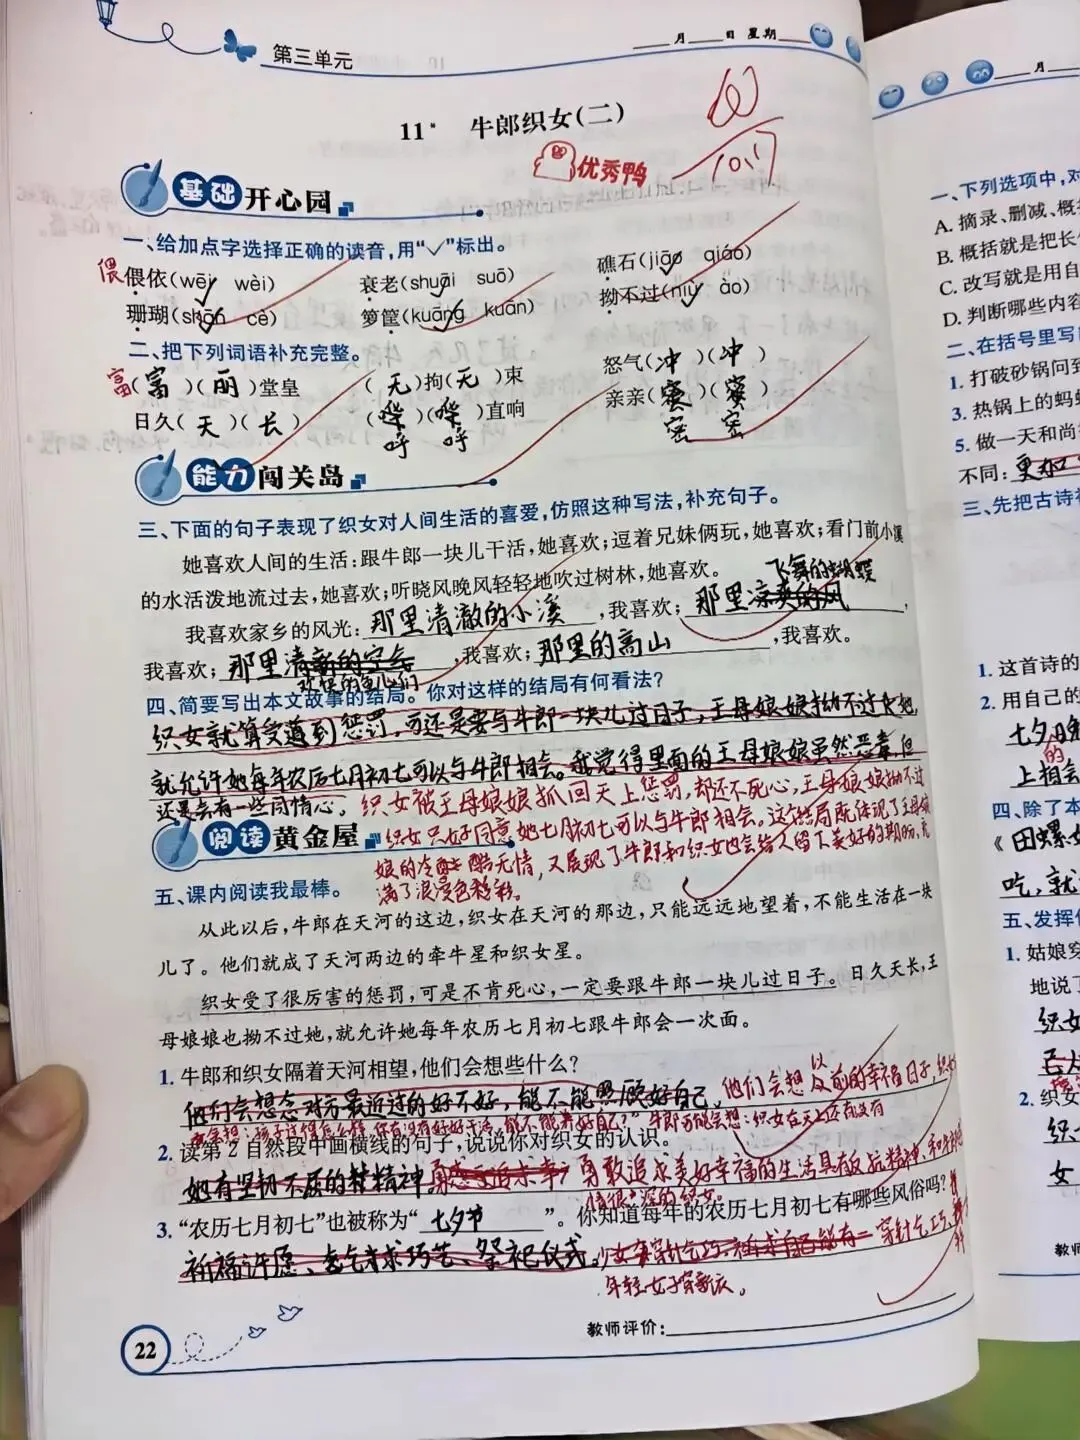 第三单元
月 日 星期
11* 牛郎织女(二)
10.17
优秀鸭
基础 开心园
一、给加点字选择正确的读音,用“√”标出。
偎 偎依(wēi wèi) 衰老(shuāi suō) 礁石(jiāo qiáo)
珊瑚(shān cè) 箩筐(kuāng kuān) 拗不过(niù ào)
二、把下列词语补充完整。
富(富)(丽)堂皇 (无)拘(无)束 怒气(冲)(冲)
日久(天)(长) (哗)(哗)直响 亲亲(蜜)(蜜)
呼 呼 密 密
能力 闯关岛
三、下面的句子表现了织女对人间生活的喜爱,仿照这种写法,补充句子。
她喜欢人间的生活:跟牛郎一块儿干活,她喜欢;逗着兄妹俩玩,她喜欢;看门前小溪
的水活泼地流过去,她喜欢;听晓风晚风轻轻地吹过树林,她喜欢。
飞舞的蝴蝶
我喜欢家乡的风光:那里清澈的小溪,我喜欢;那里凉爽的风,
我喜欢;那里清新的空气,我喜欢;那里的高山,我喜欢。
欢快的鱼儿们
四、简要写出本文故事的结局。你对这样的结局有何看法?
织女就算受遭到惩罚,可还是要与牛郎一块儿过日子,王母娘娘拗不过她,
就允许她每年农历七月初七可以与牛郎相会。我觉得里面的王母娘娘虽然恶毒,但
还是会有一些同情心。织女被王母娘娘抓回天上惩罚,却还不死心,王母娘娘拗不过
织女只好同意她七月初七可以与牛郎相会。这结局既体现了王母娘
娘的冷酷无情,又展现了牛郎和织女也会给人留下美好的期盼,充
满了浪漫色彩。
阅读 黄金屋
五、课内阅读我最棒。
从此以后,牛郎在天河的这边,织女在天河的那边,只能远远地望着,不能生活在一块
儿了。他们就成了天河两边的牵牛星和织女星。
织女受了很厉害的惩罚,可是不肯死心,一定要跟牛郎一块儿过日子。日久天长,王
母娘娘也拗不过她,就允许她每年农历七月初七跟牛郎会一次面。
1. 牛郎和织女隔着天河相望,他们会想些什么?
他们会想念对方最近过的好不好,能不能照顾好自己。他们会想以前的幸福日子,织女
会想:孩子过得怎么样,你有没有好好干活,能不能养好自己?”牛郎可能会想:织女在天上还有没有
2. 读第2自然段中画横线的句子,说说你对织女的认识。
她有坚韧不屈的精神,勇敢追求美好幸福的生活具有反抗精神、和
情很深的织女。
3. “农历七月初七”也被称为“七夕节”。你知道每年的农历七月初七有哪些风俗吗?
祈福许愿、乞求巧艺、祭祀仪式。穿针乞巧
年轻女子穿新衣。
教师评价:
22
月
一、下列选项中,对
A. 摘录、删减、概括
B. 概括就是把长
C. 改写就是用自
D. 判断哪些内容
二、在括号里写
1. 打破砂锅问到
3. 热锅上的蚂蚁
5. 做一天和尚
不同:更加
三、先把古诗
1. 这首诗的
2. 用自己的
七夕晚
的
上相会
四、除了本
《田螺姑
吃,就
五、发挥
1. 姑娘穿
地说了
织女
2. 织女
织
女
教师